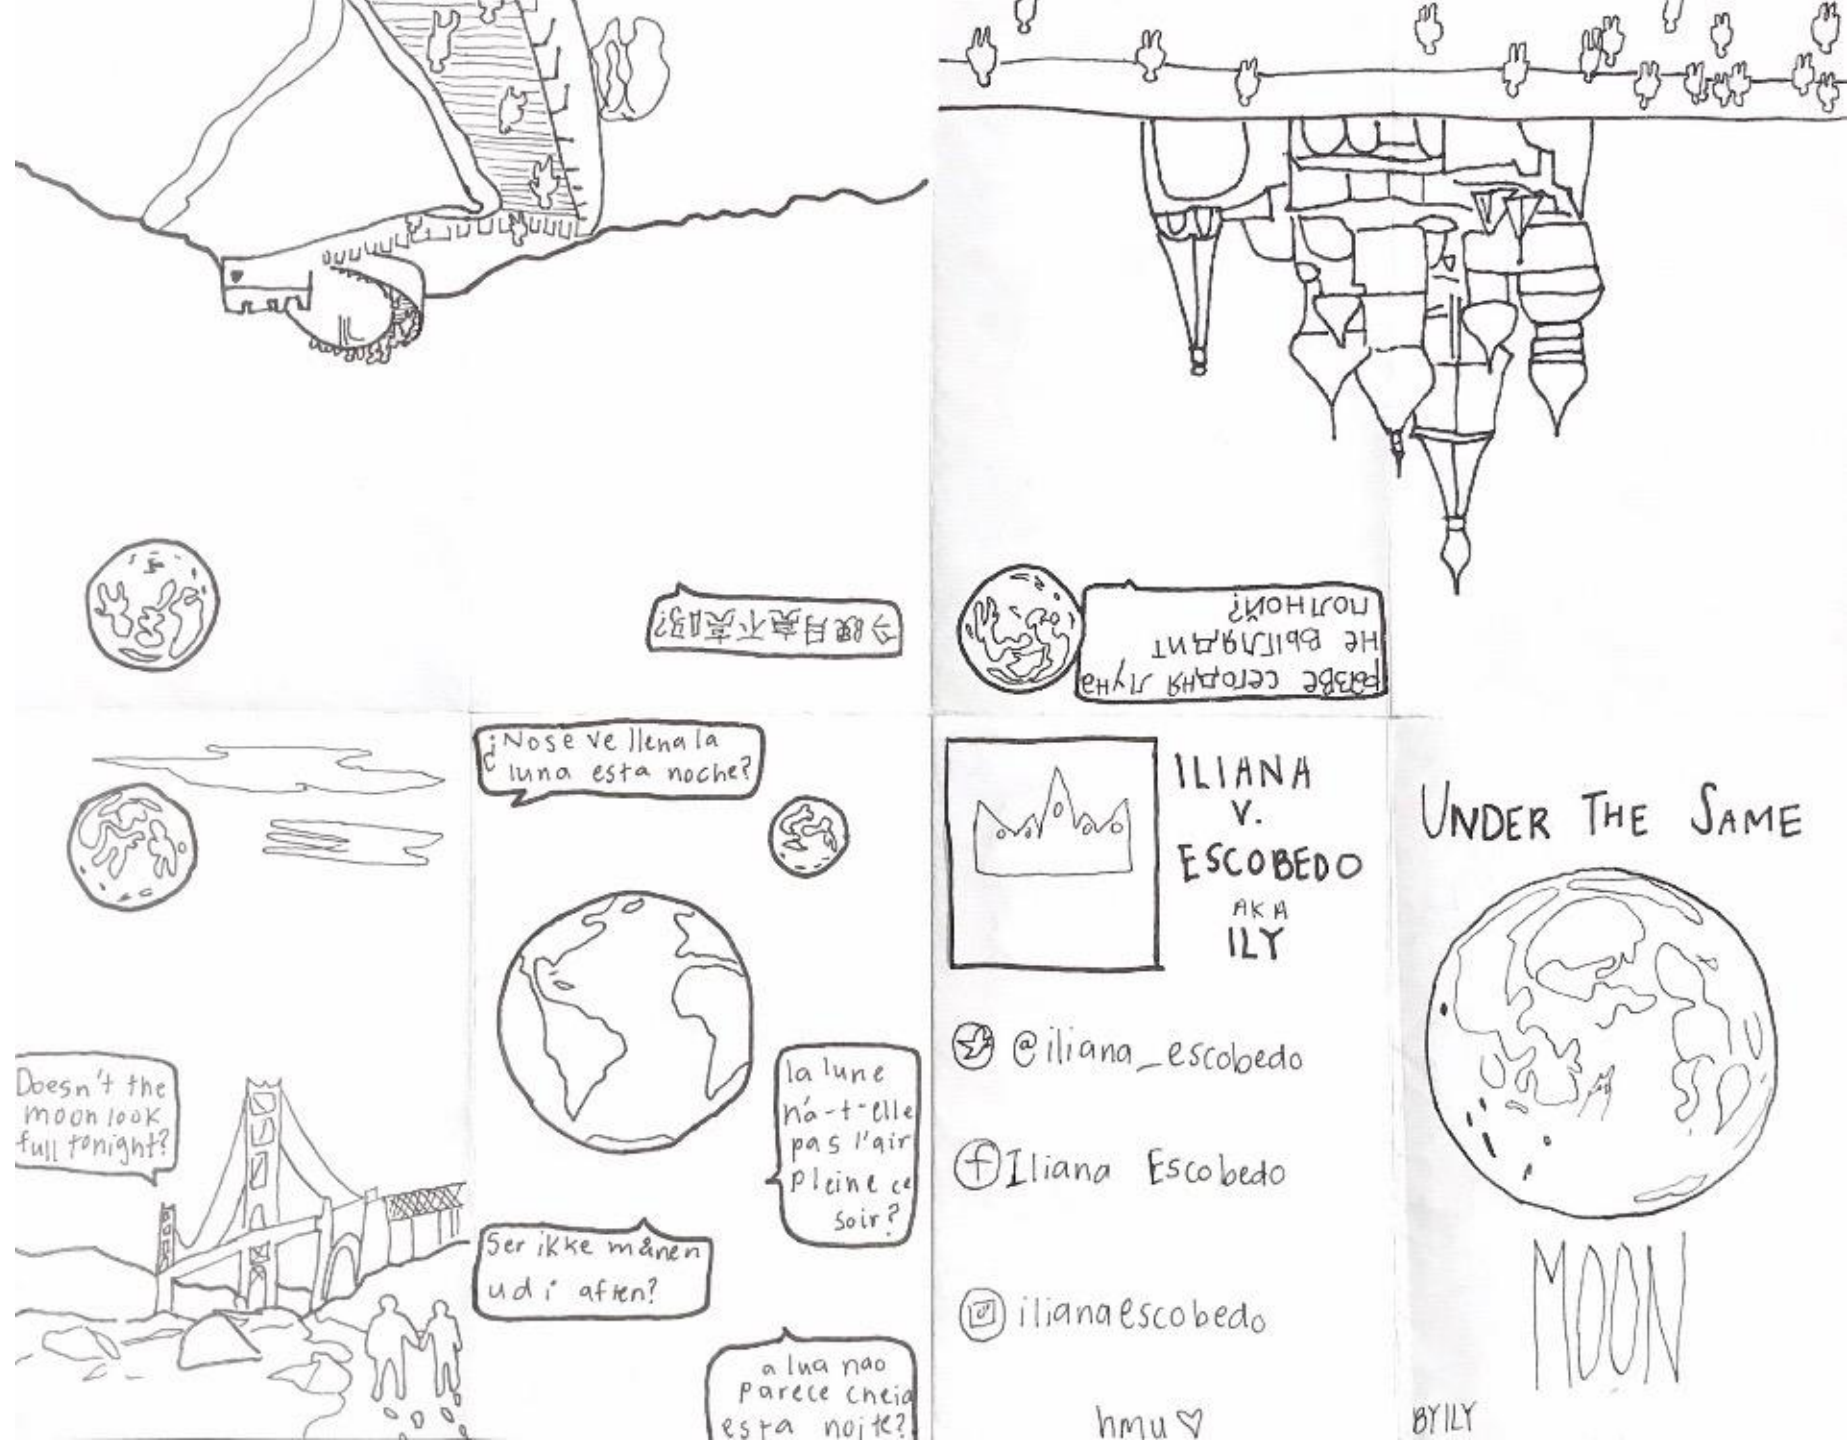 今晚月亮不亮吗?
разве сегодня луна
не выглядит
полной?
Doesn't the
moon look
full tonight?
¿Nose ve llena la
luna esta noche?
la lune
n'a-t-elle
pas l'air
pleine ce
soir?
Ser ikke månen
ud i aften?
a lua nao
parece cheia
esta noite?
ILIANA
V.
ESCOBEDO
AKA
ILY
@iliana_escobedo
Iliana Escobedo
ilianaescobedo
hmu ♡
UNDER THE SAME
MOON
BY ILY